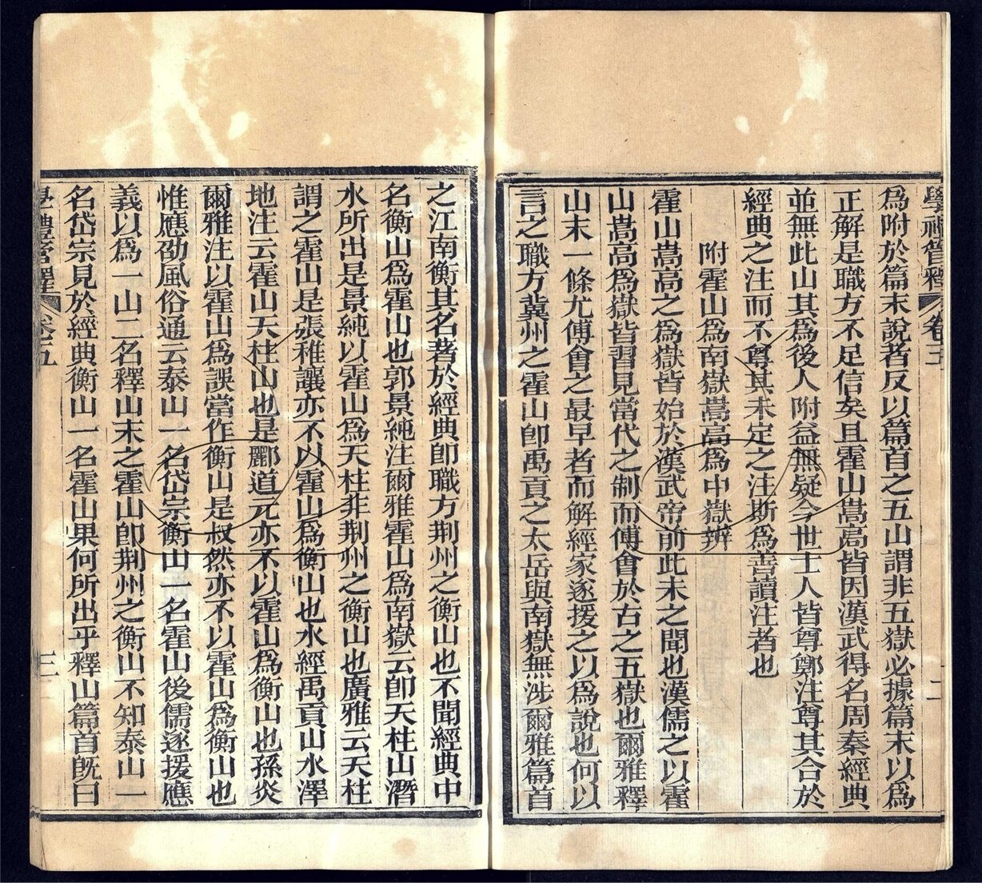 學禮管釋 卷五 二
爲附於篇末說者反以篇首之五山謂非五嶽必據篇末以爲
正解是職方不足信矣且霍山嵩高皆因漢武得名周秦經典
並無此山其爲後人附益無疑今世士人皆尊鄭注尊其合於
經典之注而不尊其未定之注斯爲善讀注者也
附霍山爲南嶽嵩高爲中嶽辨
霍山嵩高之爲嶽皆始於漢武帝前此未之聞也漢儒之以霍
山嵩高爲嶽皆習見當代之制而傅會於古之五嶽也爾雅釋
山末一條尤傅會之最早者而解經家遂援之以爲說也何以
言之職方冀州之霍山卽禹貢之太岳與南嶽無涉爾雅篇首
之江南衡其名著於經典卽職方荆州之衡山也不聞經典中
名衡山爲霍山也郭景純注爾雅霍山爲南嶽云卽天柱山潛
水所出是景純以霍山爲天柱非荆州之衡山也廣雅云天柱
謂之霍山是張稚讓亦不以霍山爲衡山也水經禹貢山水澤
地注云霍山天柱山也是酈道元亦不以霍山爲衡山也孫炎
爾雅注以霍山爲誤當作衡山是叔然亦不以霍山爲衡山也
惟應劭風俗通云泰山一名岱宗衡山一名霍山後儒遂援應
義以爲一山二名釋山末之霍山卽荆州之衡山不知泰山一
名岱宗見於經典衡山一名霍山果何所出乎釋山篇首旣曰
學禮管釋 卷五 三